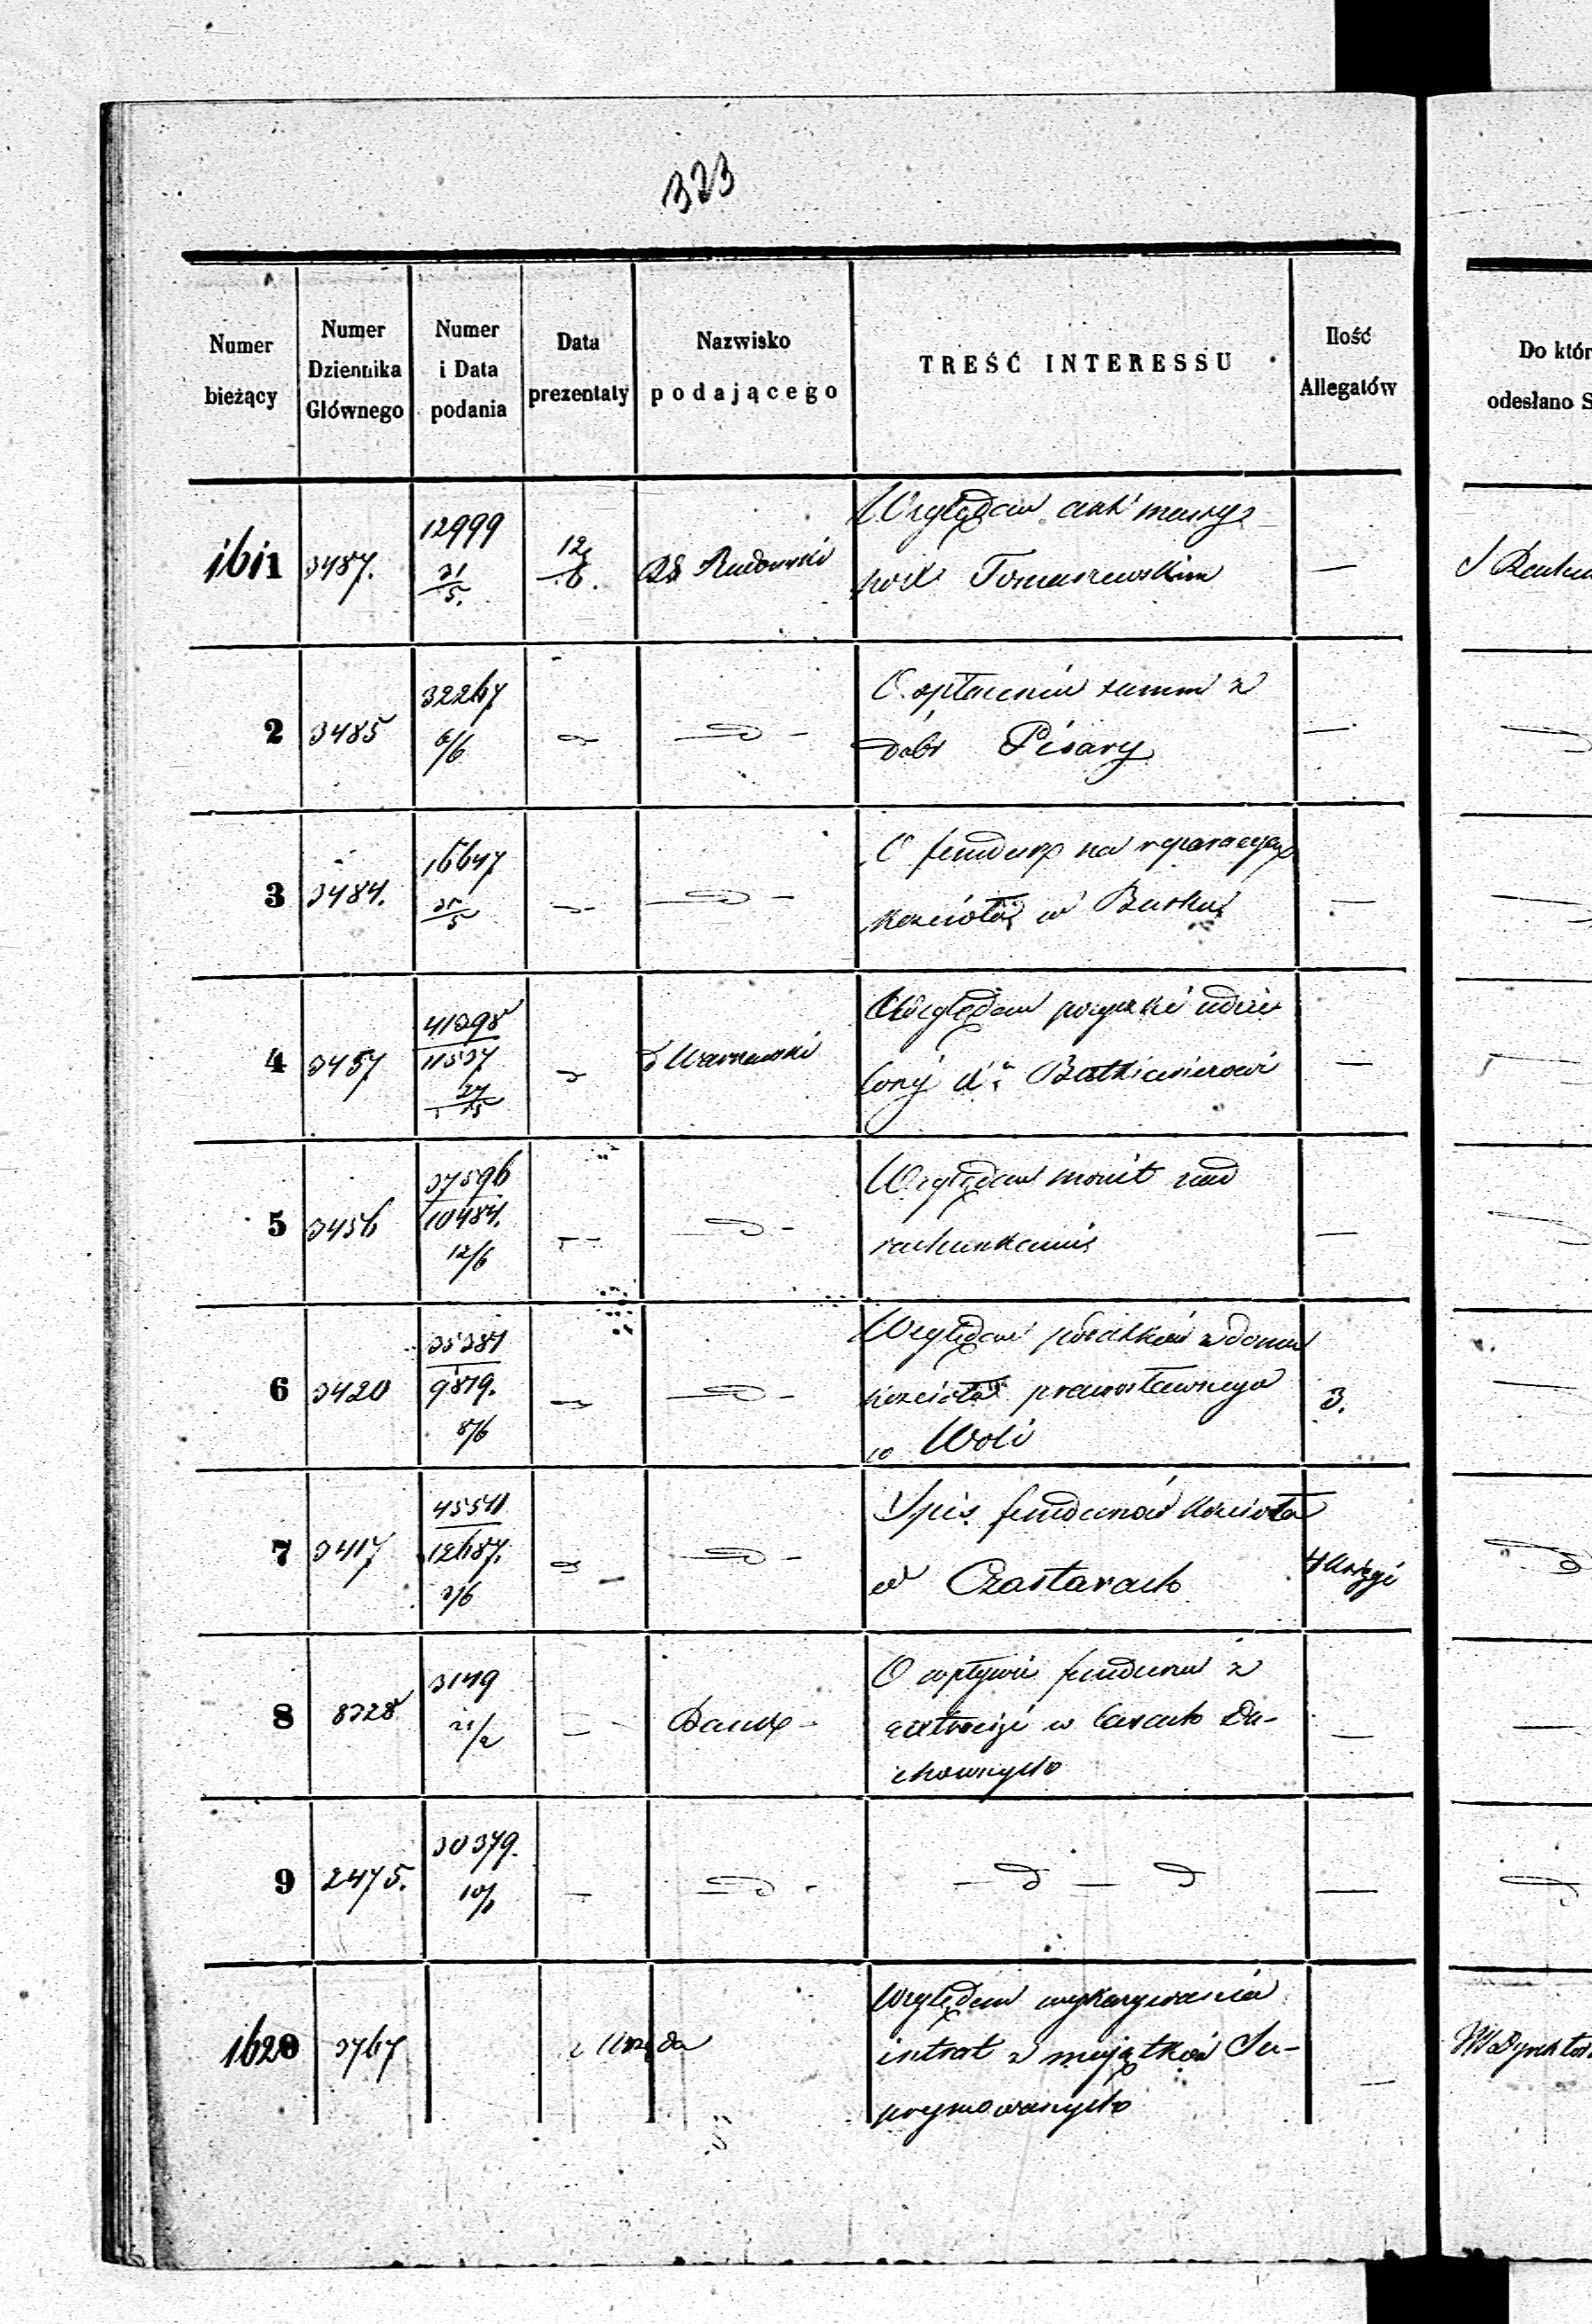 323
Numer bieżący
Numer Dziennika Głównego
Numer i Data podania
Data prezentaty
Nazwisko podającego
TREŚĆ INTERESSU
Ilość Allegatów
Do któr
odesłano S
1611 3487. 12999 31/5. 12/6. Rudowski
Względem
Tomaszewskim —
2 3485 32267 6/6 — d —
O spłaceniu summ z
dóbr Pisary —
3 3484. 16647 — d —
O fundusz na reparacyą
kościoła w Busku —
4 3457 41398 11537 27/5 Warnawski
Względem pożyczki udzie
lonej —
5 3456 37596 10484. 12/6 — d —
Względem monit nad
rachunkami —
6 3420 35381 9819. 8/6 — d —
Względem podatków z domu
kościoła prawosławnego 3.
w Woli
7 3417 45541 12687. 3/6 — d —
Spis funduszów kościoła
w Czastarach 4 Księgi
8 8328 3149 21/2 Bank —
O wpływie funduszu z
w lasach Du-
chownych —
9 2475. 30379. — d —
— d — d —
1620 3767 z Urzędu
Względem wykazywania
intrat z majątków Su-
prymowanych —